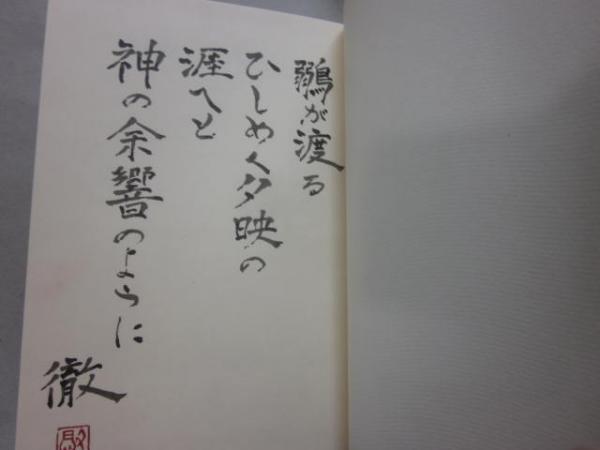 鶸が渡る
ひしめく夕映の
涯へと
神の余響のように
徹